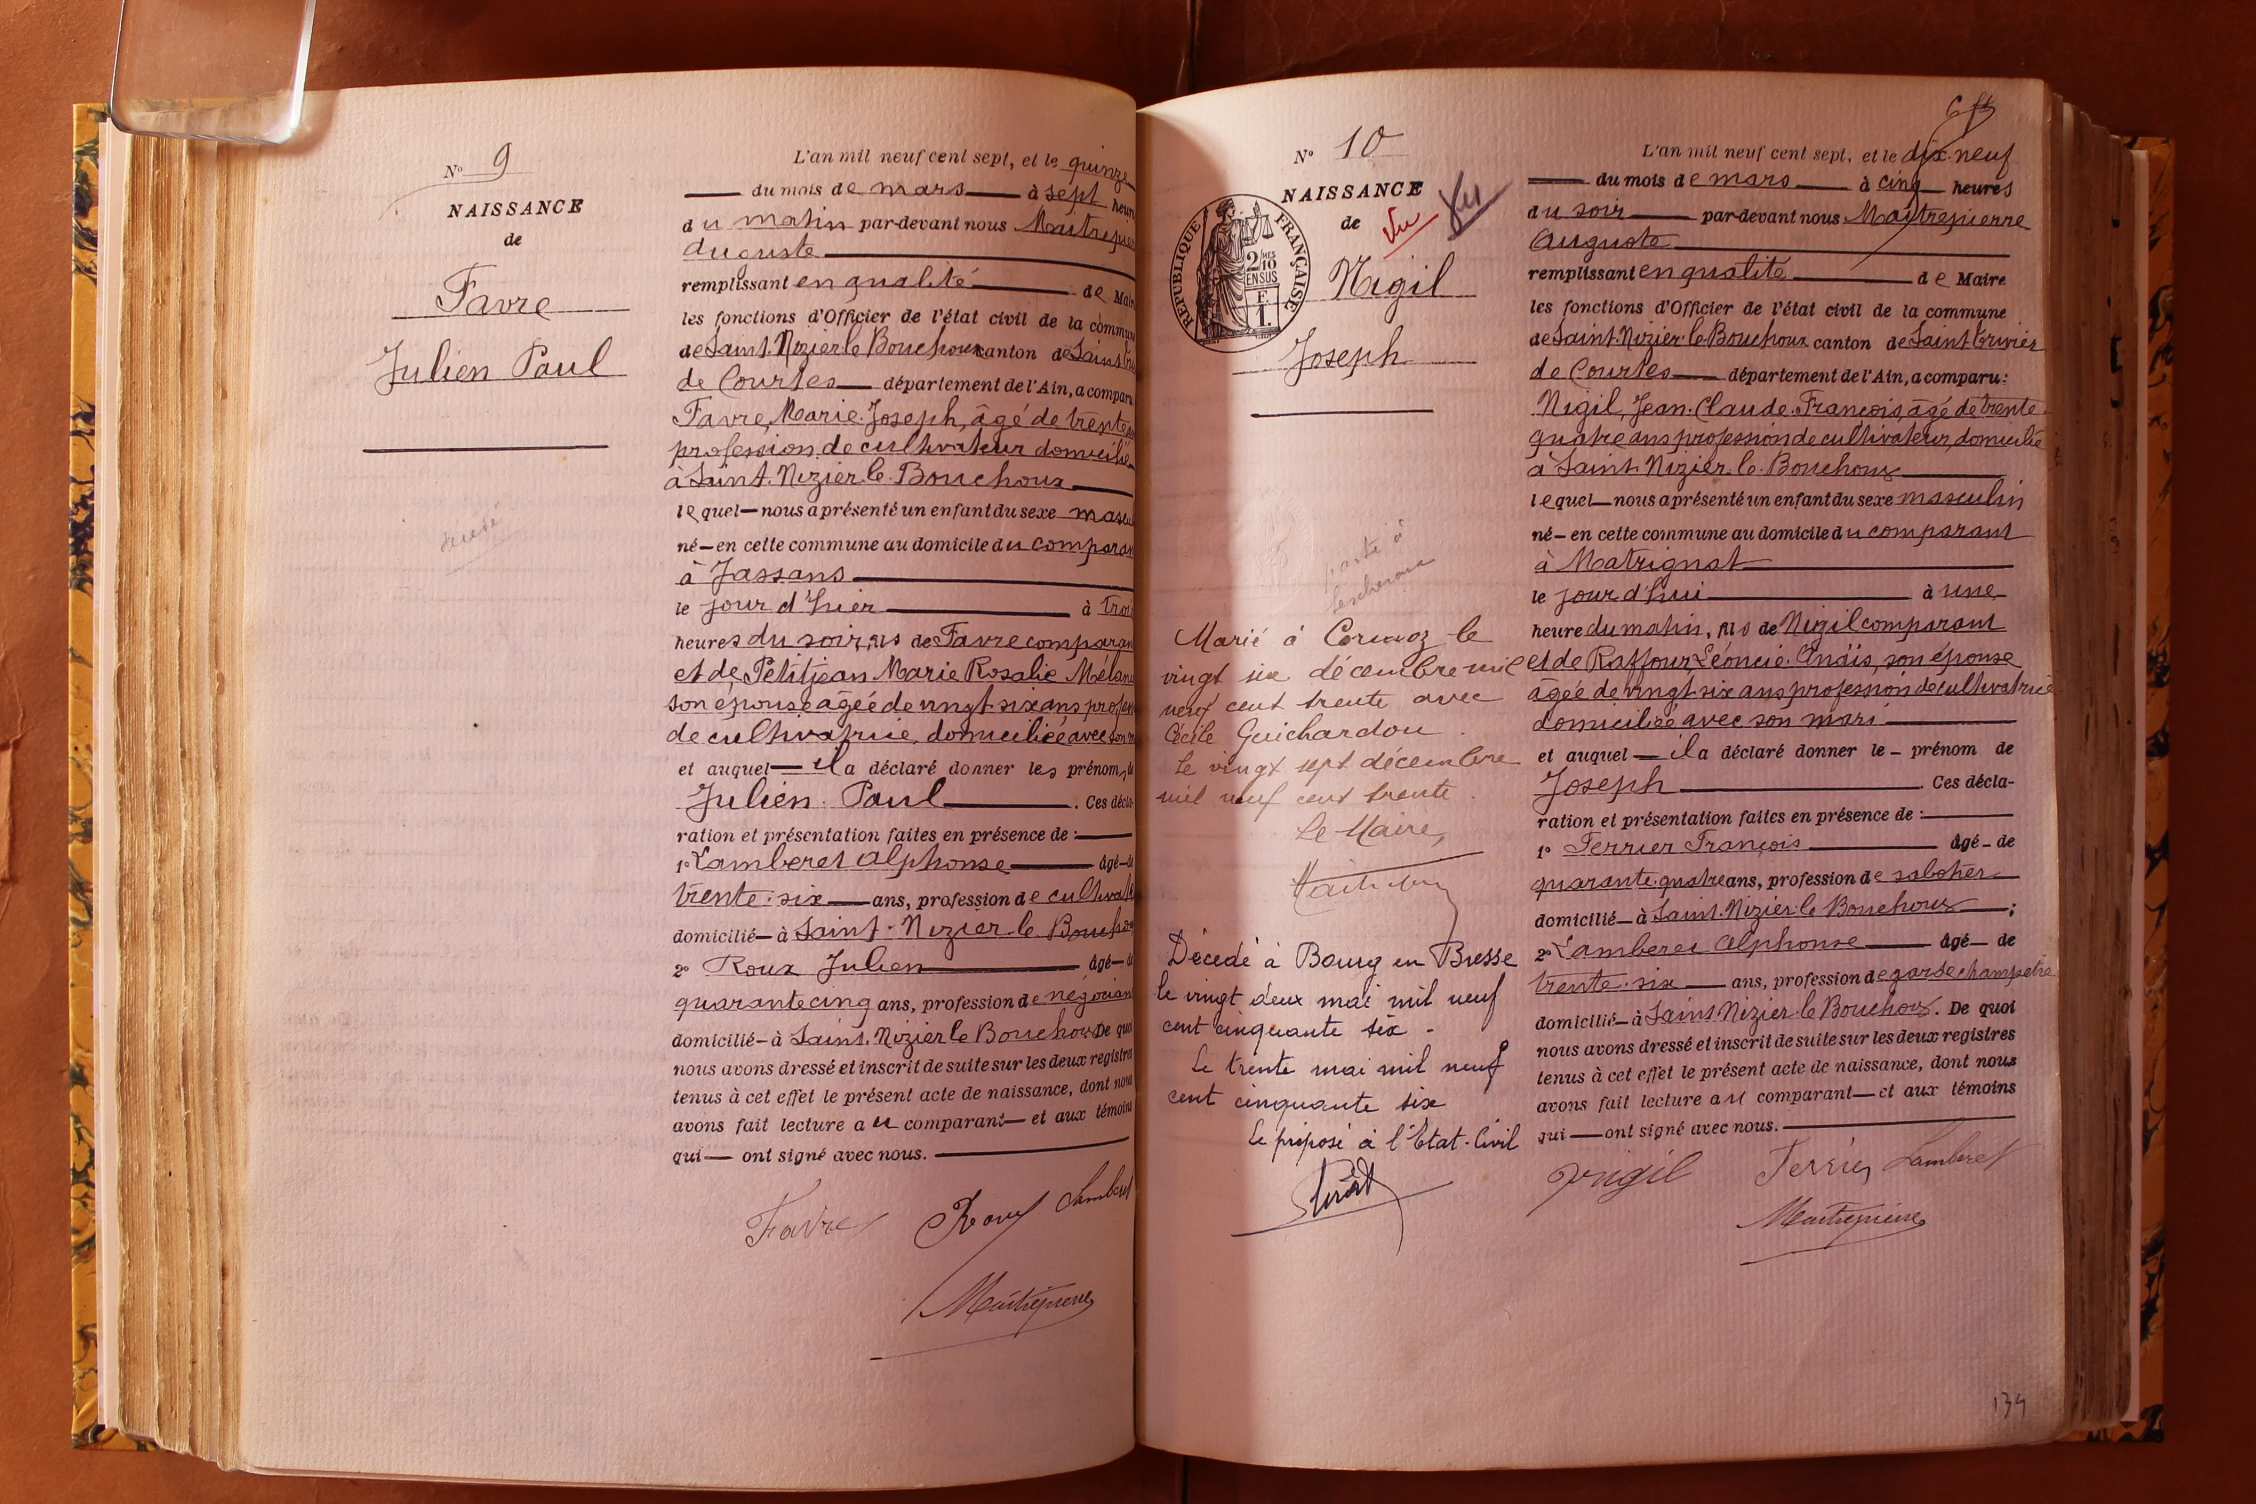 N° 9
NAISSANCE
de
Favre
Julien Paul
L'an mil neuf cent sept, et le quinze
du mois de mars à sept heures
du matin par-devant nous
Auguste
remplissant en qualité de
les fonctions d'Officier de l'état civil de la commune
de Saint-Nizier-le-Bouchoux canton de Saint
de Courtes département de l'Ain, a comparu
Favre, Marie-Joseph, âgé de trente
profession de cultivateur domicilié
à Saint-Nizier-le-Bouchoux
lequel nous a présenté un enfant du sexe
né en cette commune au domicile du comparant
à Jassans
le jour d'hier à trois
heures du soir, fils de Favre comparant
et de Petitjean Marie Rosalie
son épouse âgée de vingt-six ans
de cultivatrice, domiciliée avec son
et auquel il a déclaré donner les prénoms de
Julien Paul. Ces décla-
ration et présentation faites en présence de :
1° Lamberet Alphonse âgé de
trente-six ans, profession de
domicilié à Saint-Nizier-le
2° Roux Julien âgé de
quarante cinq ans, profession de négociant
domicilié à Saint-Nizier-le Bouchoux De quoi
nous avons dressé et inscrit de suite sur les deux registres
tenus à cet effet le présent acte de naissance, dont nous
avons fait lecture au comparant et aux témoins
qui ont signé avec nous.
Favre Roux Lamberet
Maitrepierre
N° 10
NAISSANCE
de
Vu Vu
RÉPUBLIQUE FRANÇAISE
2/10 EN SUS
F.
1.
Nigil
Joseph
Marié à Cormoz le
vingt six décembre mil
neuf cent trente avec
Cécile Guichardon.
Le vingt sept décembre
mil neuf cent trente.
Le Maire,
Décédé à Bourg en Bresse
le vingt deux mai mil neuf
cent cinquante six.
Le trente mai mil neuf
cent cinquante six
Le préposé à l'Etat-Civil
L'an mil neuf cent sept, et le dix-neuf
du mois de mars à cinq heures
du soir par-devant nous Maitrepierre
Auguste
remplissant en qualité de Maire
les fonctions d'Officier de l'état civil de la commune
de Saint-Nizier-le-Bouchoux canton de Saint-Trivier
de Courtes département de l'Ain, a comparu :
Nigil, Jean-Claude-François, âgé de trente-
quatre ans profession de cultivateur, domicilié
à Saint-Nizier-le-Bouchoux
lequel nous a présenté un enfant du sexe masculin
né en cette commune au domicile du comparant
à Matrignat
le jour d'hui à une
heure du matin, fils de Nigil comparant
et de Raffour Léoncie-Anaïs, son épouse
âgée de vingt-six ans profession de cultivatrice
domiciliée avec son mari
et auquel il a déclaré donner le prénom de
Joseph. Ces décla-
ration et présentation faites en présence de :
1° Ferrier François âgé de
quarante-quatre ans, profession de sabotier
domicilié à Saint-Nizier-le Bouchoux ;
2° Lamberet Alphonse âgé de
trente-six ans, profession de garde champêtre
domicilié à Saint Nizier-le Bouchoux. De quoi
nous avons dressé et inscrit de suite sur les deux registres
tenus à cet effet le présent acte de naissance, dont nous
avons fait lecture au comparant et aux témoins
qui ont signé avec nous.
Nigil Ferrier Lamberet
Maitrepierre
134